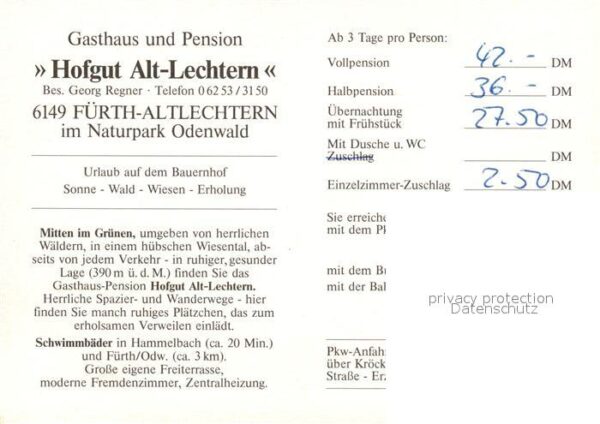 Gasthaus und Pension
» Hofgut Alt-Lechtern «
Bes. Georg Regner · Telefon 0 62 53 / 31 50
6149 FÜRTH-ALTLECHTERN
im Naturpark Odenwald
Urlaub auf dem Bauernhof
Sonne - Wald - Wiesen - Erholung
Mitten im Grünen, umgeben von herrlichen
Wäldern, in einem hübschen Wiesental, ab-
seits von jedem Verkehr - in ruhiger, gesunder
Lage (390 m ü. d. M.) finden Sie das
Gasthaus-Pension Hofgut Alt-Lechtern.
Herrliche Spazier- und Wanderwege - hier
finden Sie manch ruhiges Plätzchen, das zum
erholsamen Verweilen einlädt.
Schwimmbäder in Hammelbach (ca. 20 Min.)
und Fürth/Odw. (ca. 3 km).
Große eigene Freiterrasse,
moderne Fremdenzimmer, Zentralheizung.
Ab 3 Tage pro Person:
Vollpension 42.- DM
Halbpension 36.- DM
Übernachtung
mit Frühstück 27.50 DM
Mit Dusche u. WC
Zuschlag DM
Einzelzimmer-Zuschlag 2.50 DM
Sie erreiche
mit dem
mit dem
mit der
privacy protection
Datenschutz
Pkw-Anfah
über Kröck
Straße -